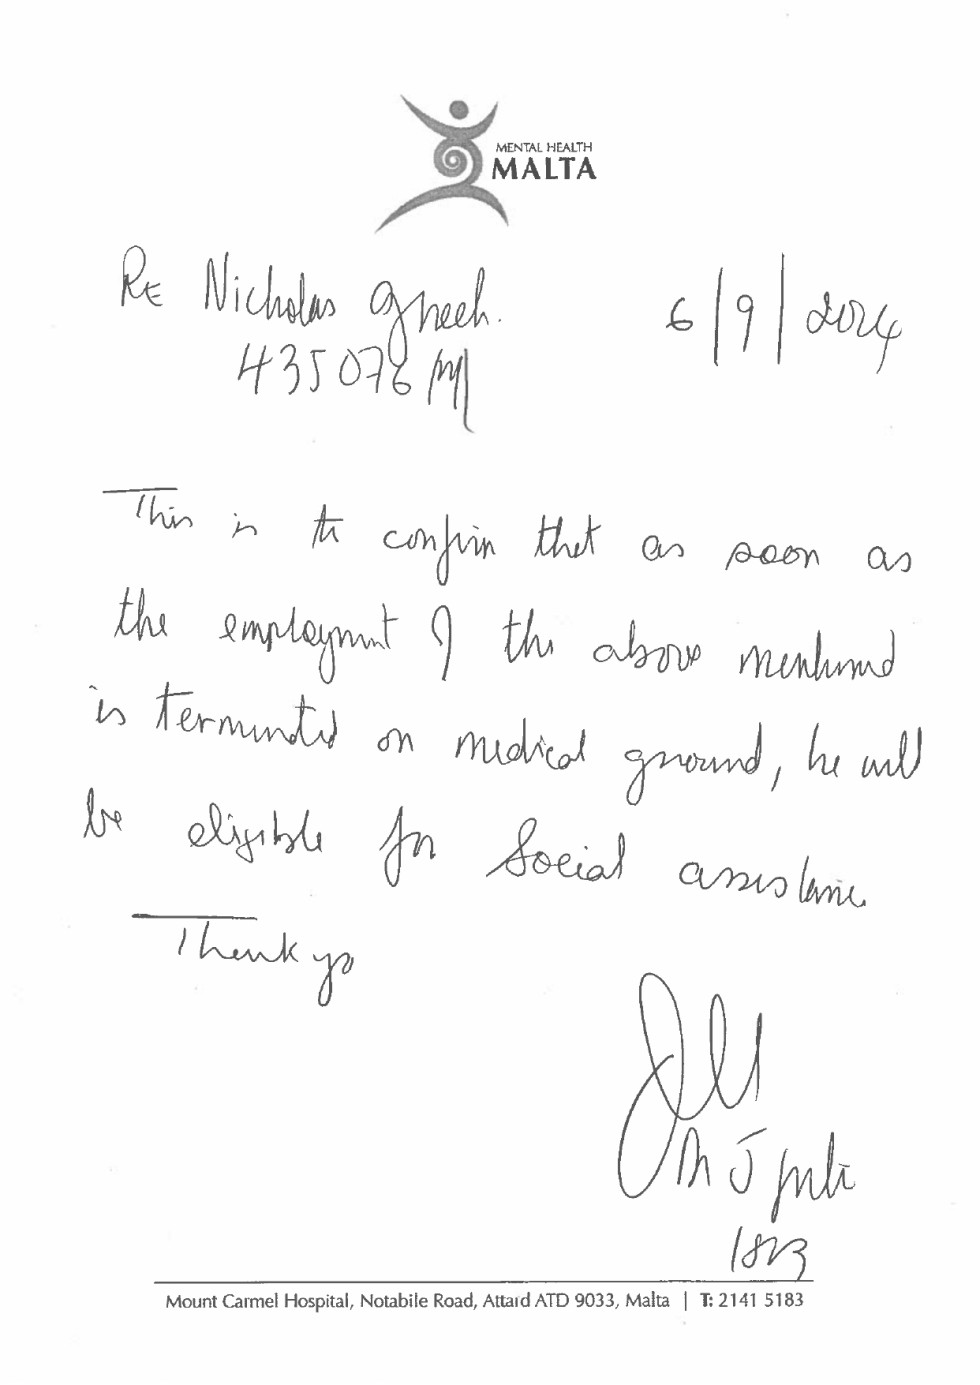 MENTAL HEALTH
MALTA
RE Nicholas Grech.
6/9/2024
435076M
This is to confirm that as soon as
the employment of the above mentioned
is terminated on medical ground, he will
be eligible for Social assistance
Thank you
1823
Mount Carmel Hospital, Notabile Road, Attard ATD 9033, Malta | T: 2141 5183